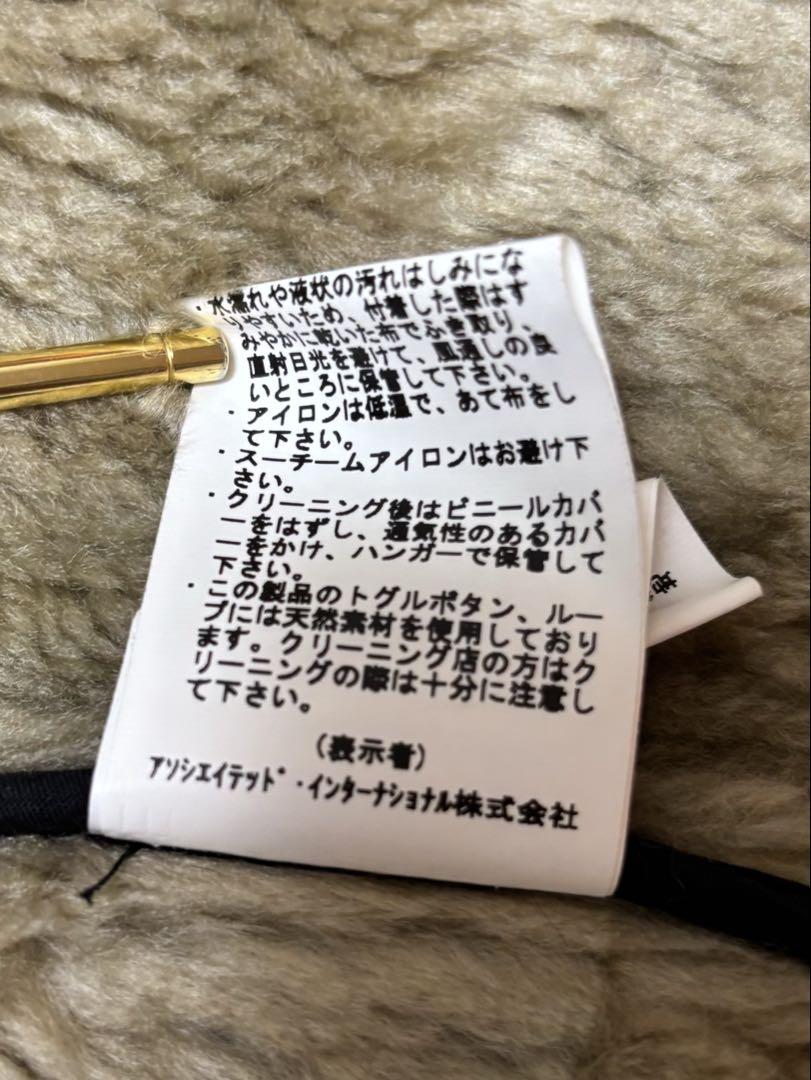 ・水濡れや液状の汚れはしみにな
りやすいため、付着した際はす
みやかに乾いた布でふき取り、
直射日光を避けて、風通しの良
いところに保管して下さい。
・アイロンは低温で、あて布をし
て下さい。
・スーチームアイロンはお避け下
さい。
・クリーニング後はビニールカバ
ーをはずし、通気性のあるカバ
ーをかけ、ハンガーで保管して
下さい。
・この製品のトグルボタン、ルー
プには天然素材を使用しており
ます。クリーニング店の方はク
リーニングの際は十分に注意し
て下さい。
（表示者）
アソシエイテッド・インターナショナル株式会社